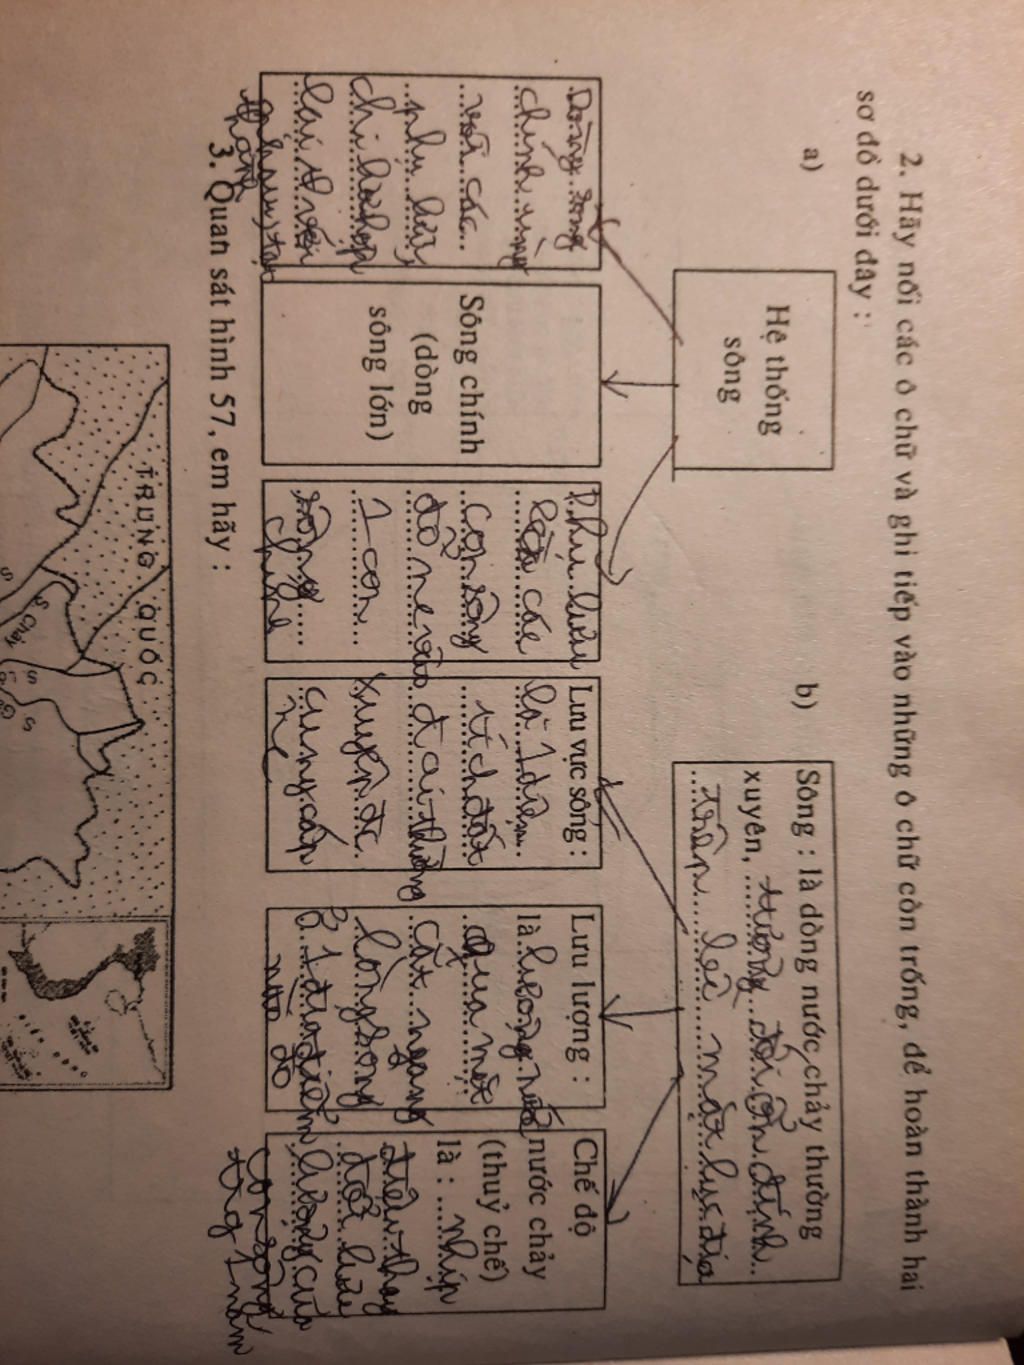 2. Hãy nối các ô chữ và ghi tiếp vào những ô chữ còn trống, để hoàn thành hai
sơ đồ dưới đây :
a)
Hệ thống
sông
Dòng sông
chính cùng
với các
phụ lưu,
chi lưu hợp
lại với
nhau, tạo
thành
Sông chính
(dòng
sông lớn)
Phụ lưu
là các
con sông
đổ nc vào
1 con
sông
chính
b)
Sông : là dòng nước chảy thường
xuyên, tương đối ổn định
trên bề mặt lục địa
Lưu vực sông :
là 1 diện
tích đất
đai thường
xuyên đc
cung cấp
nc
Lưu lượng :
là lượng nước
qua mặt
cắt ngang
lòng sông
ở 1 địa điểm
nào đó
Chế độ
nước chảy
(thuỷ chế)
là : nhịp
điệu thay
đổi lưu
lượng của
con sông
trg 1 năm
3. Quan sát hình 57, em hãy :
TRUNG QUỐC
S. Chảy